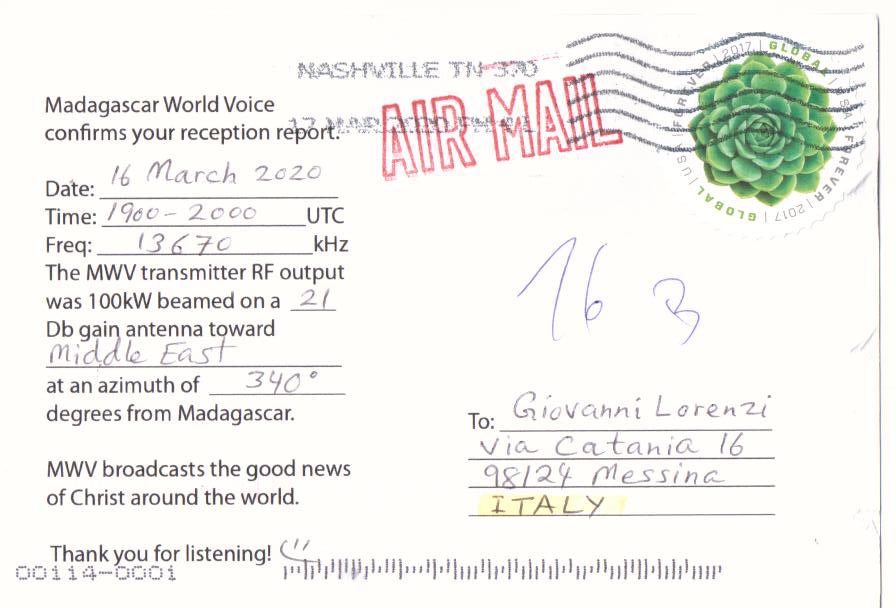 NASHVILLE TN 370
17 MAR 2020 PM
AIR MAIL
FOREVER | 2017 | GLOBAL | USA FOREVER | 2017 | GLOBAL | US
Madagascar World Voice
confirms your reception report:
Date: 16 March 2020
Time: 1900-2000 UTC
Freq: 13670 kHz
The MWV transmitter RF output
was 100kW beamed on a 21
Db gain antenna toward
Middle East
at an azimuth of 340°
degrees from Madagascar.
MWV broadcasts the good news
of Christ around the world.
Thank you for listening!
00114-0001
16 B
To: Giovanni Lorenzi
Via Catania 16
98124 Messina
ITALY